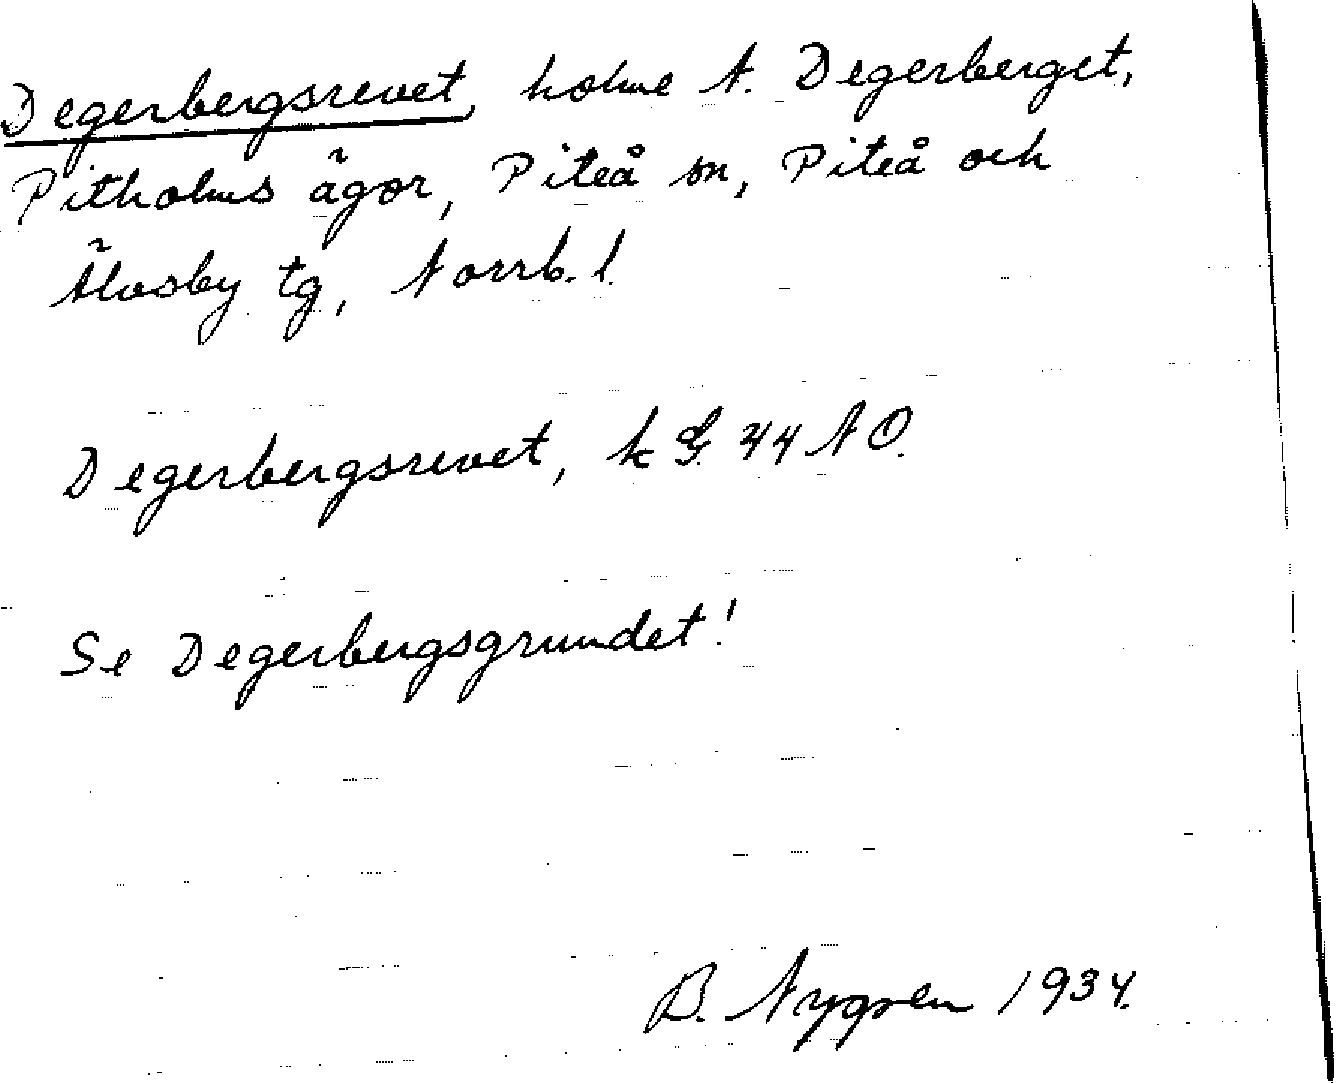 Degerbergsrevet, holme N. Degerberget,
Pitholms ägor, Piteå sn, Piteå och
Älvsby tg, Norrb. l.
Degerbergsrevet, k G. 44 NO.
Se Degerbergsgrundet!
B. Nygren 1934.